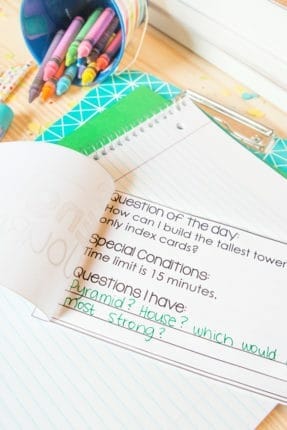 Question of the day:
How can I build the tallest tower
only index cards?
Special Conditions:
Time limit is 15 minutes.
Questions I have:
Pyramid? House? which would
most strong?